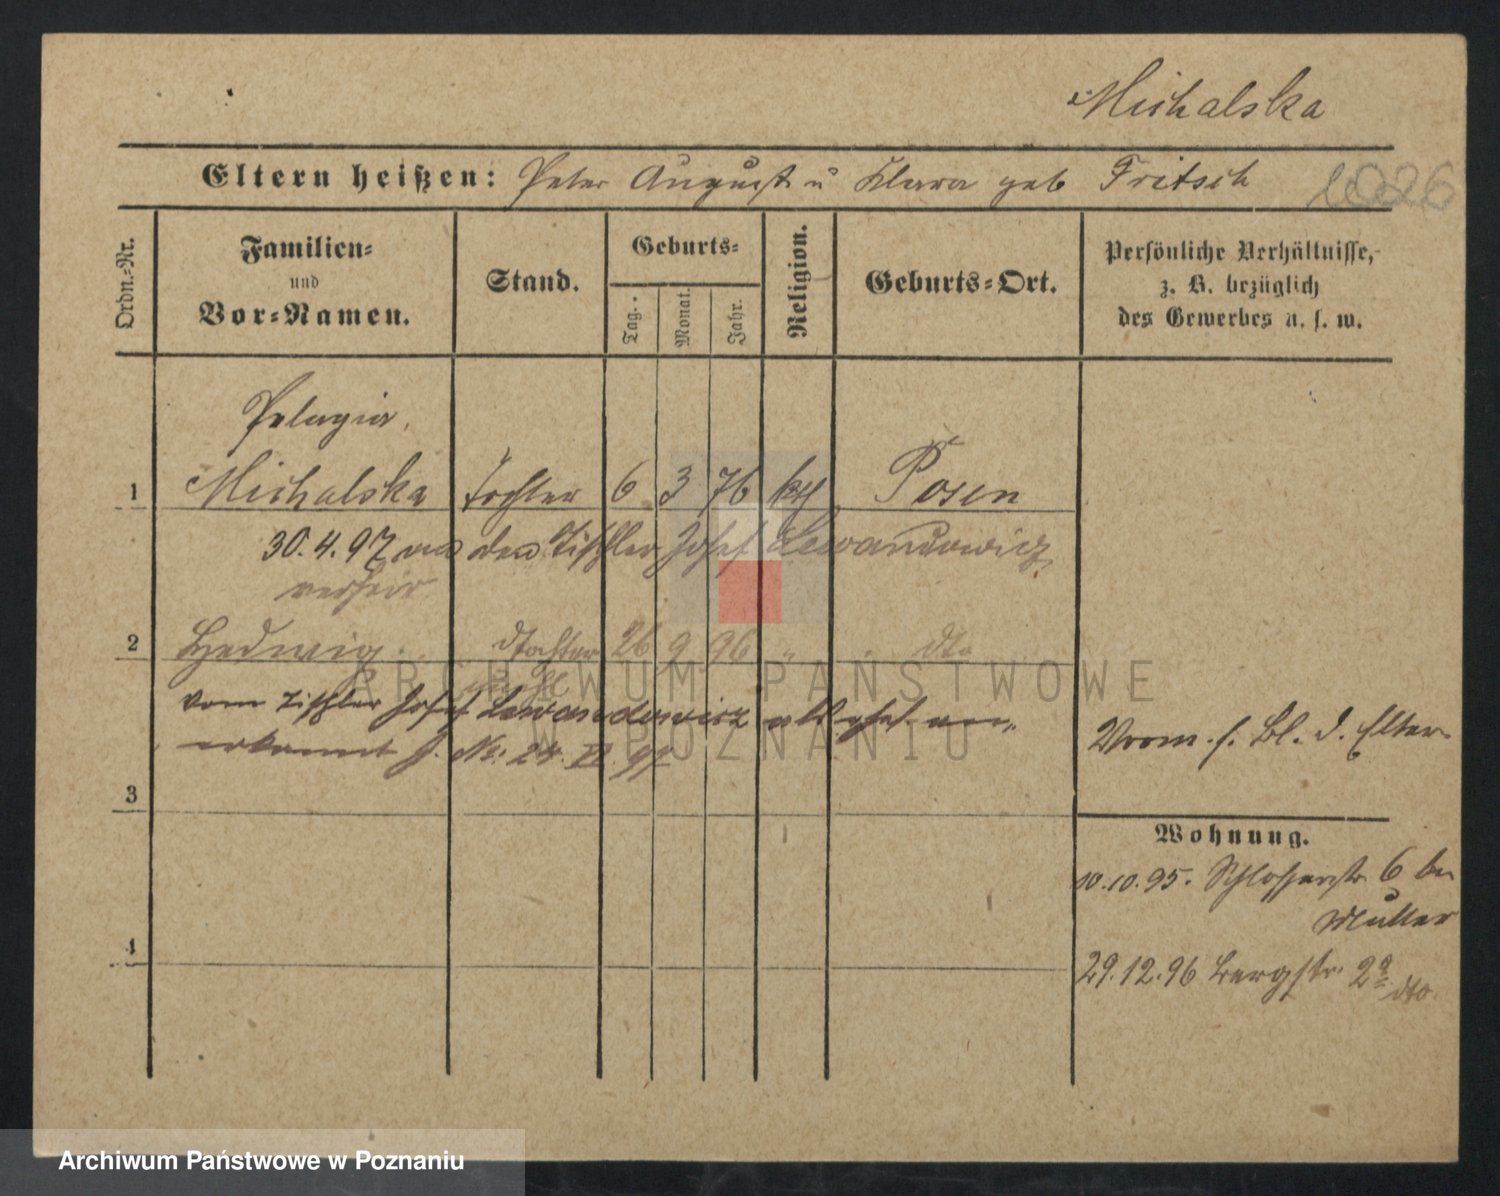 Michalska
Eltern heißen: Peter August u Klara geb Fritsch 1026
Ordn.-Nr. Familien- und Vor-Namen. Stand. Geburts- Tag. Monat. Jahr. Religion. Geburts-Ort. Persönliche Verhältnisse, z. B. bezüglich des Gewerbes u. s. w.
Pelagia
1 Michalska Tochter 6 3 76 kth Posen
30.4.97 den Tischler Josef Lewandowicz
verheir
2 Hedwig Tochter 26 9 96 " dto
unehl
vom Tischler Josef Lewandowicz als ehel an-
erkannt St. A. 24. XI. 97
Vorm. s. Bl. d. Elter
3
Wohnung.
10.10.95. Schlosserstr 6 bei
Müller
4
29.12.96 Bergstr. 2a dto.
ARCHIWUM PAŃSTWOWE
W POZNANIU
Archiwum Państwowe w Poznaniu